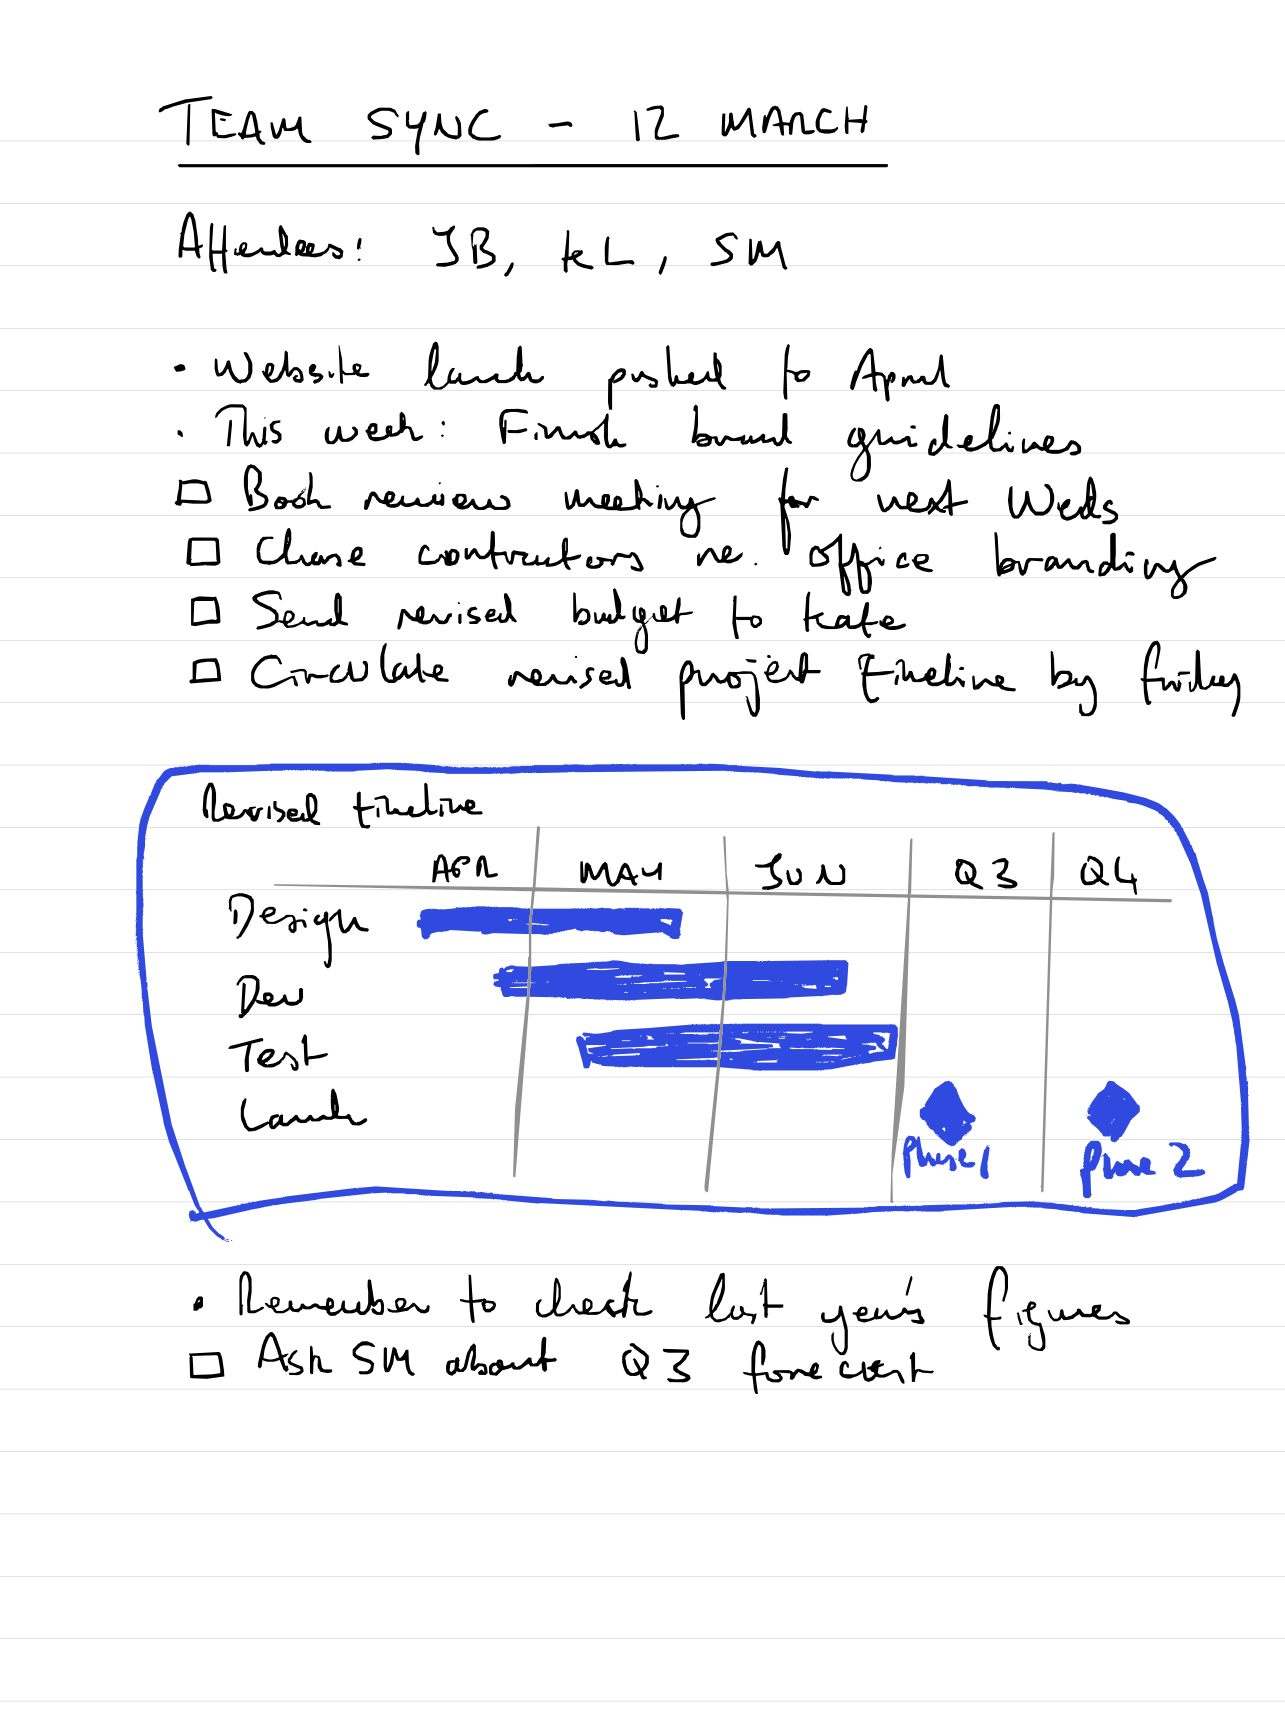 TEAM SYNC - 12 MARCH
Attendees: JB, KL, SM
• Website launch pushed to April
• This week: Finish brand guidelines
☐ Book review meeting for next Weds
☐ Chase contractors re. office branding
☐ Send revised budget to Kate
☐ Circulate revised project timeline by friday
Revised timeline
APR MAY JUN Q3 Q4
Design
Dev
Test
Launch
Phase 1 Phase 2
• Remember to check last year's figures
☐ Ask SM about Q3 forecast